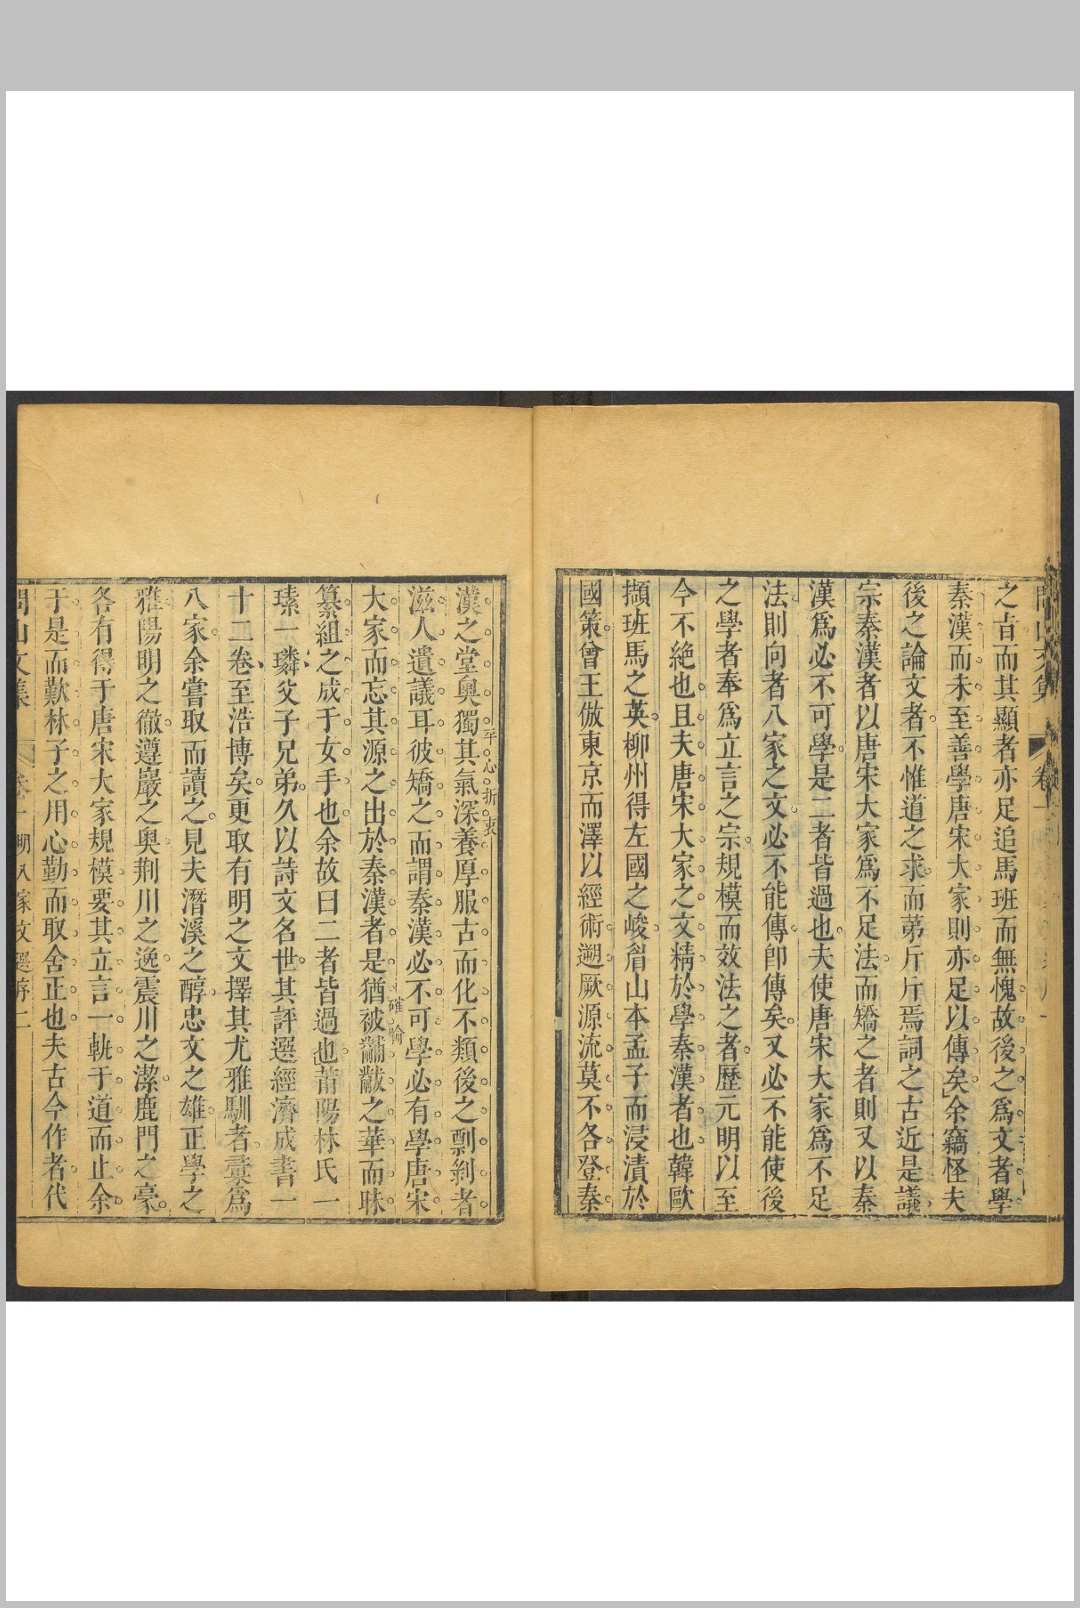 之旨而其顯者亦足追馬班而無愧故後之爲文者學
秦漢而未至善學唐宋大家則亦足以傳矣余竊怪夫
後之論文者不惟道之求而苐斤斤焉詞之古近是議
宗秦漢者以唐宋大家爲不足法而矯之者則又以秦
漢爲必不可學是二者皆過也夫使唐宋大家爲不足
法則向者八家之文必不能傳卽傳矣又必不能使後
之學者奉爲立言之宗規模而效法之者歷元明以至
今不絶也且夫唐宋大家之文精於學秦漢者也韓歐
擷班馬之英柳州得左國之峻眉山本孟子而浸漬於
國策曾王倣東京而澤以經術遡厥源流莫不各登秦
漢之堂奥獨其氣深養厚服古而化不類後之剽剥者
平心折衷
滋人遺議耳彼矯之而謂秦漢必不可學必有學唐宋
確論
大家而忘其源之出於秦漢者是猶被黼黻之華而昧
纂組之成于女手也余故曰二者皆過也莆陽林氏一
瑧一璘爻子兄弟久以詩文名世其評選經濟成書一
十二卷至浩博矣更取有明之文擇其尤雅馴者彚爲
八家余嘗取而讀之見夫潛溪之醇忠文之雄正學之
雅陽明之徹遵巖之奥荆川之逸震川之潔鹿門之豪
各有得于唐宋大家規模要其立言一軌于道而止余
于是而歎林子之用心勤而取舍正也夫古今作者代
問山文集 卷一 明八家文選序 二